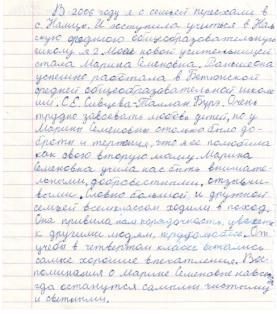 В 2006 году я с семьей переехали в
с. Намцы. И поступила учиться в Нам-
скую среднюю общеобразовательную
школу № 2. Моей новой учительницей
стала Марина Семеновна. Раньше она
успешно работала в Бетюнской
средней общеобразовательной школе
им. С.Е. Сивцева-Таллан Бүрэ. Очень
трудно завоевать любовь детей, но у
Марины Семеновны столько было до-
броты и терпения, что я ее полюбила
как свою вторую маму. Марина
Семеновна учила нас быть внима-
тельными, добросовестными, отзыв-
чивыми. Словно большой и дружной
семьей всем классом ходили в поход.
Она привила нам порядочность, уважение
к другим людям, трудолюбие. От
учебы в четвертом классе остались
самые хорошие впечатления. Вос-
поминания о Марине Семеновне навсе-
гда останутся самыми чистыми
и светлыми.